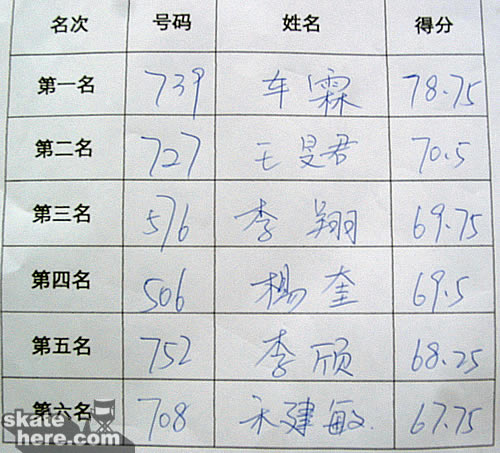 名次 号码 姓名 得分
第一名 739 车霖 78.75
第二名 727 王旻君 70.5
第三名 576 李翔 69.75
第四名 506 杨奎 69.5
第五名 752 李颀 68.25
第六名 708 建敏 67.75
skate
here.com